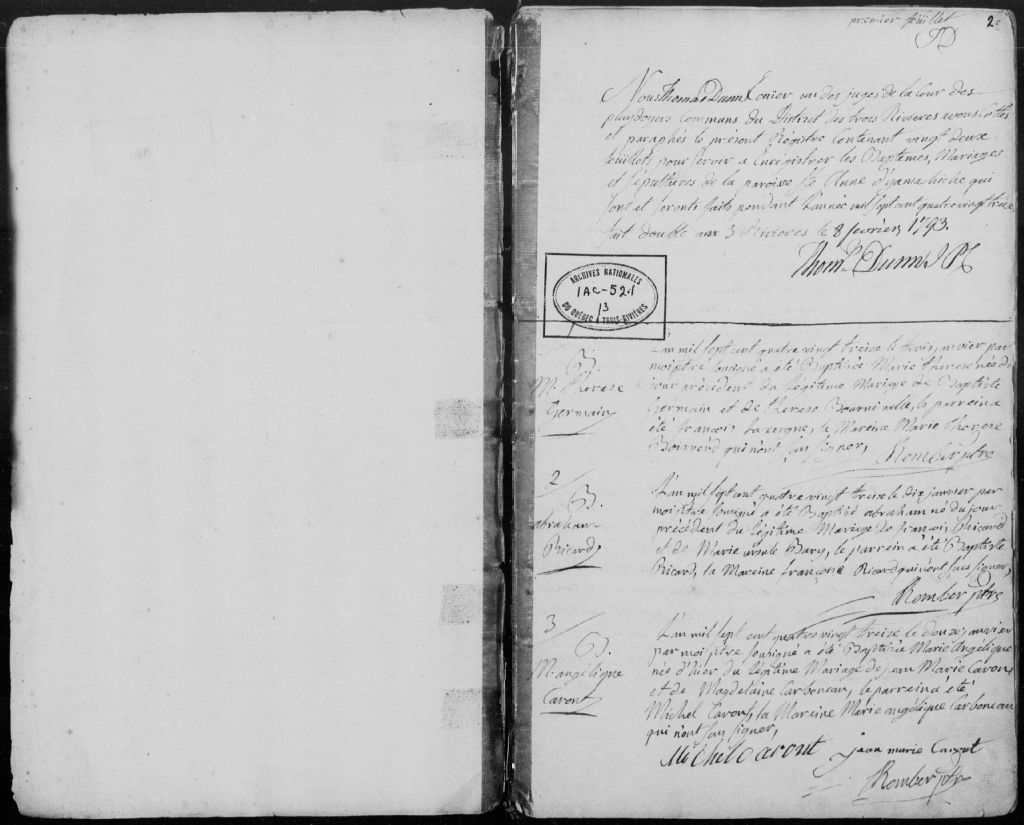 premier feuillet
2
TD
Nous Thomas Dunn Ecuier un des juges de la Cour des
playdoyers Communs du District des trois Rivieres avons Cottés
et paraphés le présent Régistre Contenant vingt deux
feuillets pour servir a Enrégistrer les Baptêmes, Mariages
et sépultures de la paroisse Ste Anne d'yamachiche qui
sont et seronts faits pendant l'année mil sept cent quatre vingt treize
fait double aux 3 Rivieres le 8 fevrier 1793.
Thoms Dunn J P C
ARCHIVES NATIONALES
1AC-52.1
13
DU QUÉBEC À TROIS-RIVIÈRES
1
B.
M. Therese
Germain
L'an mil sept cent quatre vingt treize le trois janvier par
moi ptre sousigné a été Baptisée Marie therese née du
jour précédent du Légitime Mariage de Baptiste
Germain et de therese le parrein a
été francois la Mareine Marie therese
qui n'ont sçu signer,
Rember ptre
2
B.
abraham
Ricard
L'an mil sept cent quatre vingt treize le dix janvier par
moi ptre sousigné a été Baptisé abraham né du jour
précédent du Légitime Mariage de francois Ricard
et de Marie ursule le parrein a été Baptiste
Ricard, la Mareine françoise Ricard qui n'ont sçus signer,
Rember ptre
3
B.
M. angélique
Caront
L'an mil sept cent quatre vingt treize le douze janvier
par moi ptre sousigné a été Baptisée Marie Angélique
née d'hier du Légitime Mariage de jean Marie Caron
et de Magdelaine Carboneau, le parrein a été
Michel Caront, la Mareine Marie angélique Carboneau
qui n'ont sçu signer,
Michel caront jean marie Caront
Rember ptre